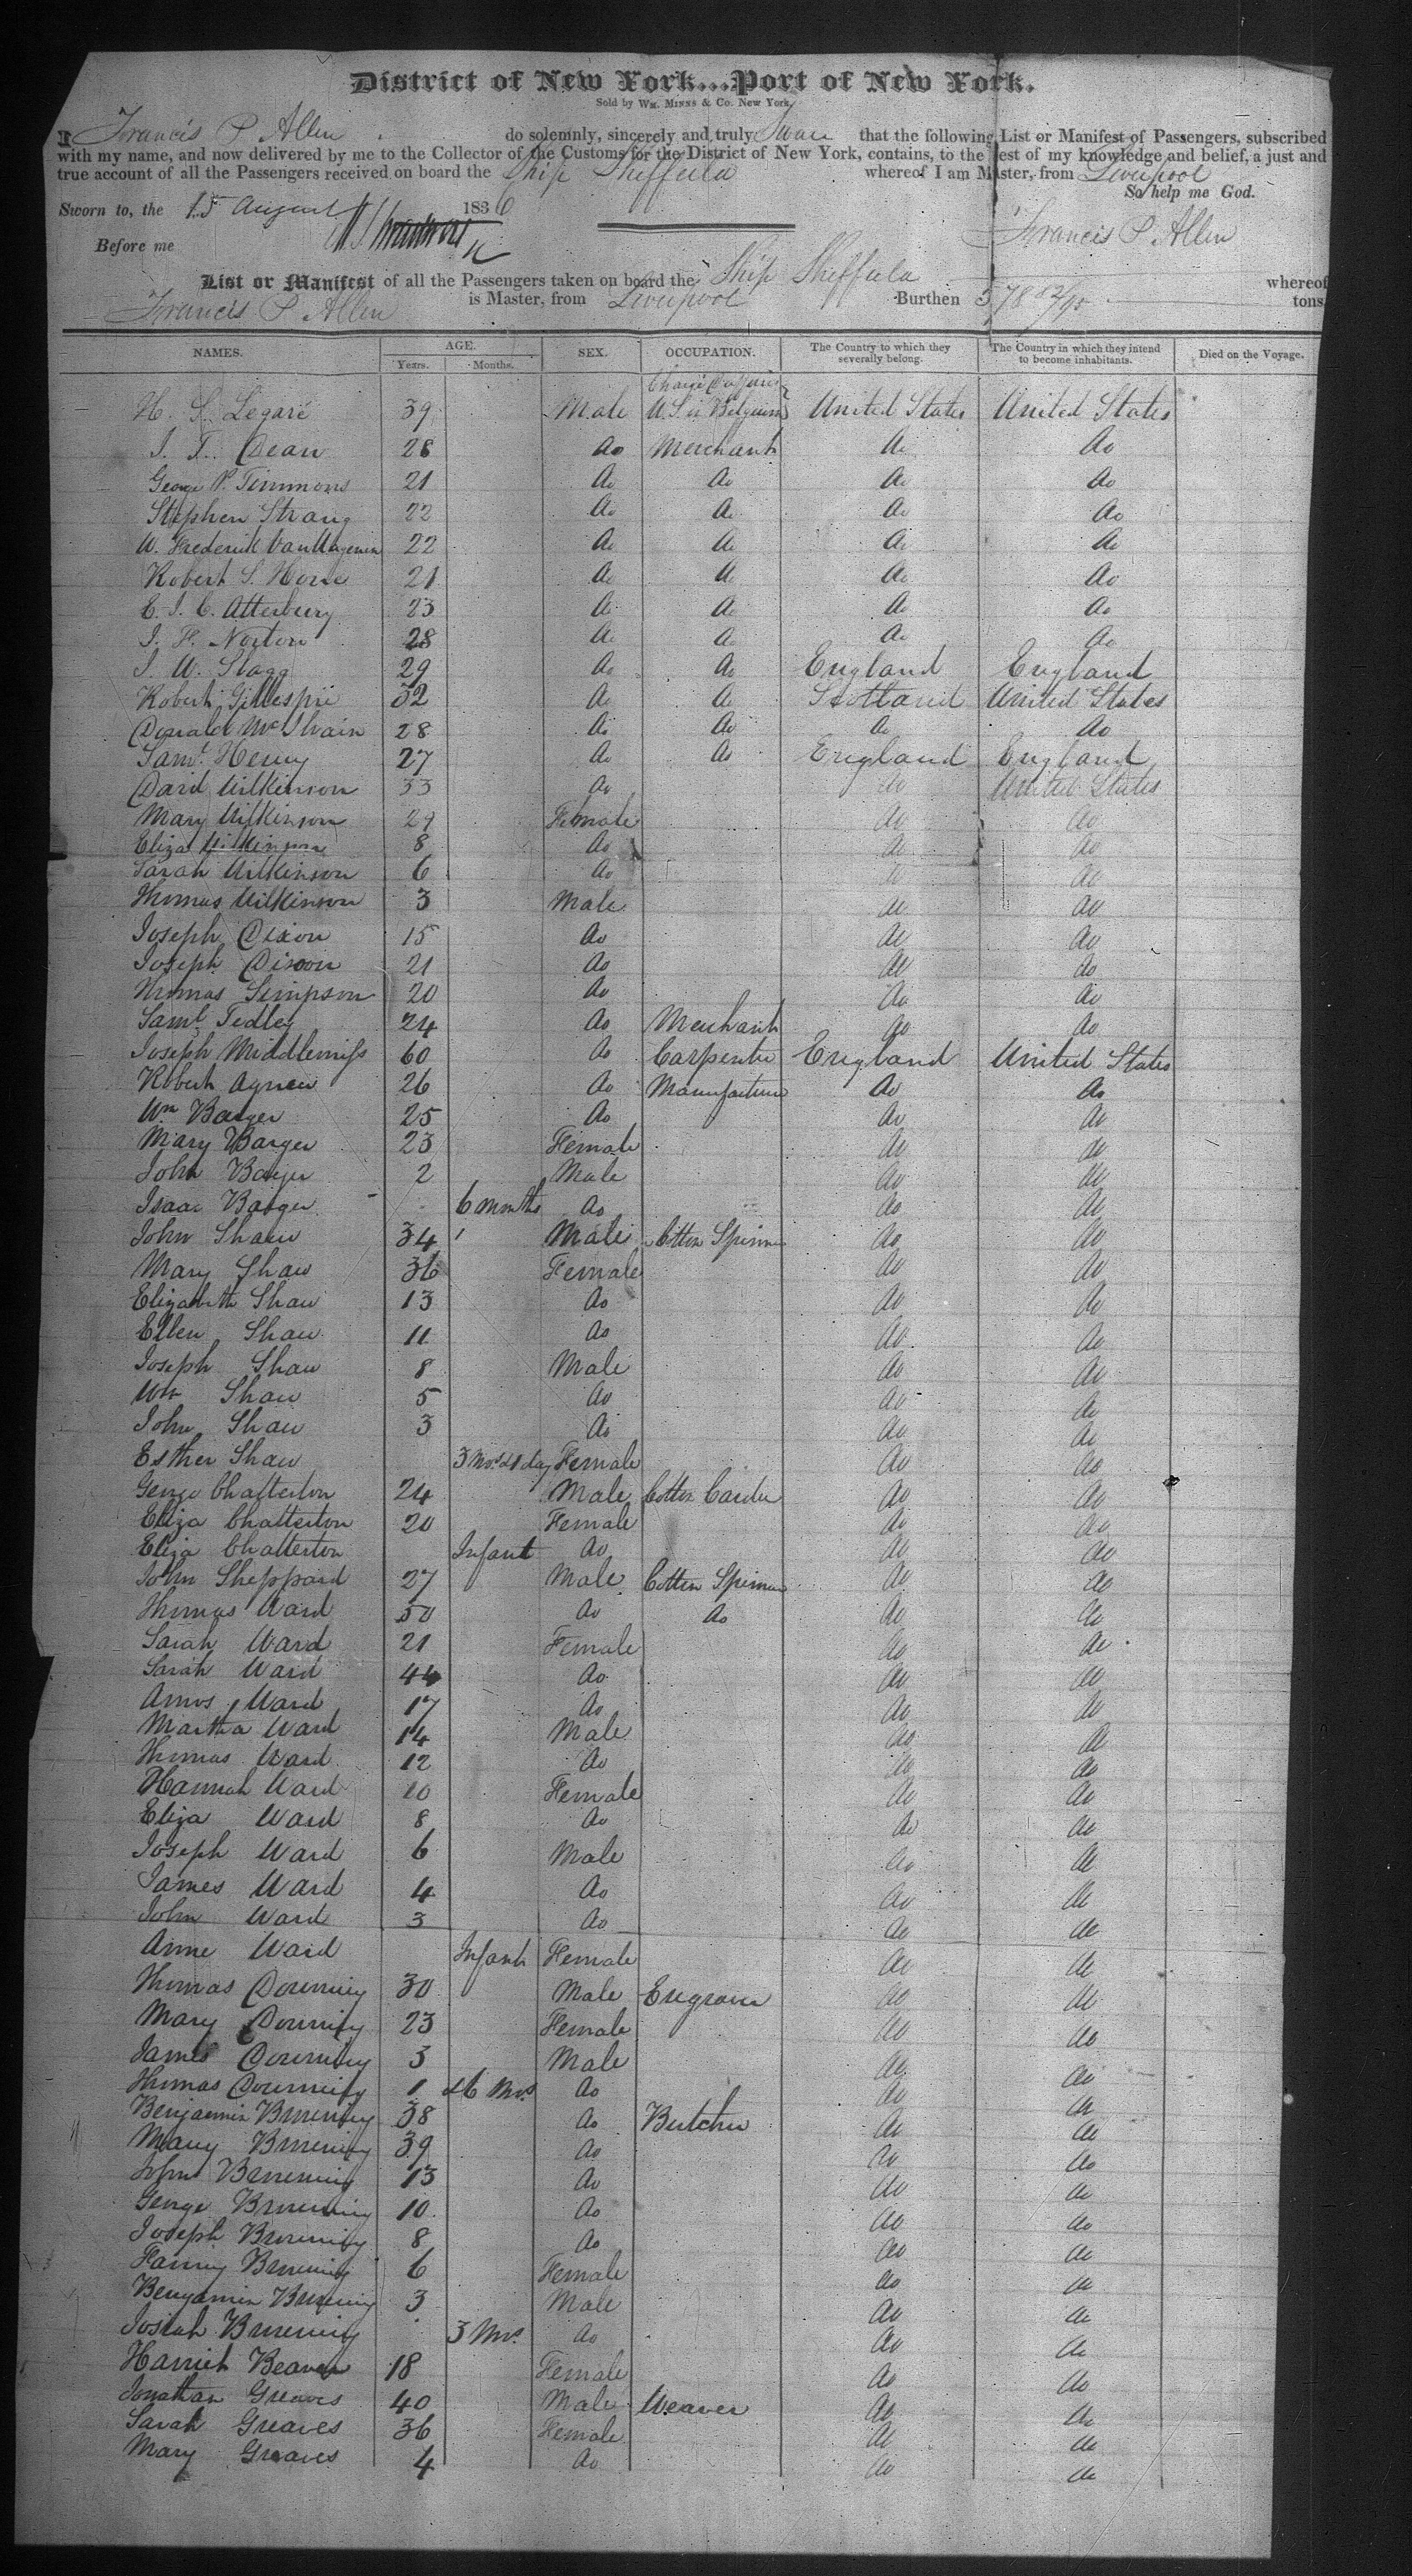 District of New York...Port of New York.
Sold by Wm. Minns & Co. New York.
I Francis P Allen do solemnly, sincerely and truly Swear that the following List or Manifest of Passengers, subscribed
with my name, and now delivered by me to the Collector of the Customs for the District of New York, contains, to the best of my knowledge and belief, a just and
true account of all the Passengers received on board the Ship Sheffield whereof I am Master, from Liverpool
So help me God.
Sworn to, the 15 August 1836
Francis P Allen
Before me
List or Manifest of all the Passengers taken on board the Ship Sheffield whereof
Francis P Allen is Master, from Liverpool Burthen 578 tons.
NAMES. AGE. SEX. OCCUPATION. The Country to which they severally belong. The Country in which they intend to become inhabitants. Died on the Voyage.
Years. Months.
H. S. Legaré 39 Male U.S. in Belgium United States United States
J. T. Dean 28 do Merchant do do
George P. Timmons 21 do do do do
Stephen Strang 22 do do do do
W. Frederick 22 do do do do
Robert S. Hone 21 do do do do
E. J. C. Atterbury 23 do do do do
J. F. Norton 28 do do do do
J. W. Stagg 29 do do England England
Robert Gillespie 32 do do Scotland United States
Donald McIlvain 28 do do do do
Saml. Henry 27 do do England England
David Wilkinson 33 do do United States
Mary Wilkinson 29 Female do do
Eliza Wilkinson 8 do do do
Sarah Wilkinson 6 do do do
Thomas Wilkinson 3 Male do do
Joseph Dixon 15 do do do
Joseph Dixon 21 do do do
Thomas Simpson 20 do do do
Saml. Tedley 24 do Merchant do do
Joseph Middlemiss 60 do Carpenter England United States
Robert Agnew 26 do Manufacturer do do
Wm Barger 25 do do do
Mary Barger 23 Female do do
John Barger 2 Male do do
Isaac Barger 6 months do do do
John Shaw 34 Male Cotton Spinner do do
Mary Shaw 36 Female do do
Elizabeth Shaw 13 do do do
Ellen Shaw 11 do do do
Joseph Shaw 8 Male do do
Wm Shaw 5 do do do
John Shaw 3 do do do
Esther Shaw 3 Mos. 21 day Female do do
George Chatterton 24 Male Cotton Carder do do
Eliza Chatterton 20 Female do do
Eliza Chatterton Infant do do do
John Sheppard 27 Male Cotton Spinner do do
Thomas Ward 50 do do do do
Sarah Ward 21 Female do do
Sarah Ward 44 do do do
Amos Ward 17 do do do
Martha Ward 14 Male do do
Thomas Ward 12 do do do
Hannah Ward 10 Female do do
Eliza Ward 8 do do do
Joseph Ward 6 Male do do
James Ward 4 do do do
John Ward 3 do do do
Anne Ward Infant Female do do
Thomas Downing 30 Male Engraver do do
Mary Downing 23 Female do do
James Downing 3 Male do do
Thomas Downing 1 & 6 Mos do do do
Benjamin Browning 38 do Butcher do do
Mary Browning 39 do do do
John Browning 13 do do do
George Browning 10 do do do
Joseph Browning 8 do do do
Fanny Browning 6 Female do do
Benjamin Browning 3 Male do do
Josiah Browning 3 Mos. do do do
Harriet Beaver 18 Female do do
Jonathan Greaves 40 Male Weaver do do
Sarah Greaves 36 Female do do
Mary Greaves 4 do do do